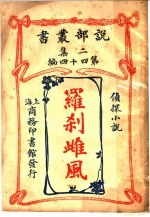 說部叢書
二集
第四十四編
偵探小說
羅刹雌風
上海
商務印書館發行